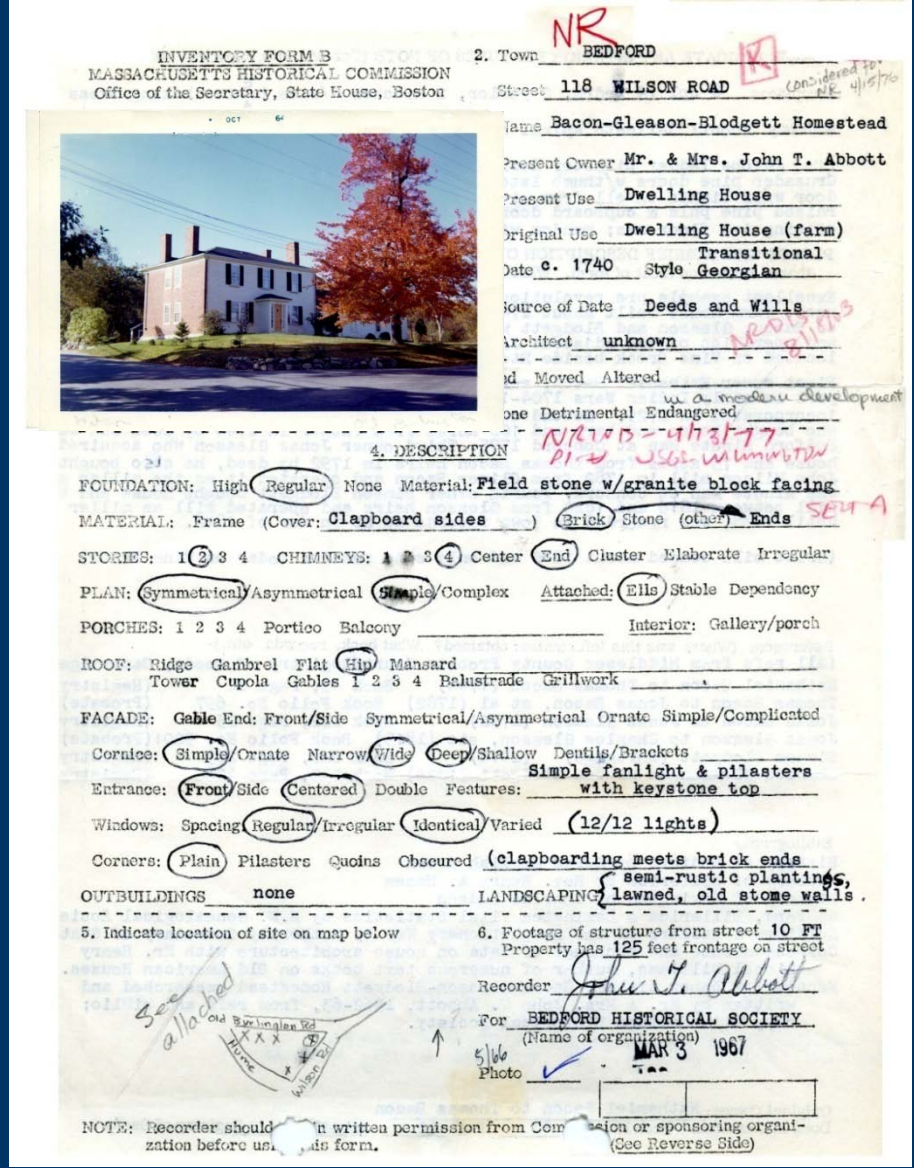 NR
INVENTORY FORM B
MASSACHUSETTS HISTORICAL COMMISSION
Office of the Secretary, State House, Boston
OCT 64
2. Town BEDFORD
R.
Street 118 WILSON ROAD
considered for NR 4/15/76
Name Bacon-Gleason-Blodgett Homestead
Present Owner Mr. & Mrs. John T. Abbott
Present Use Dwelling House
Original Use Dwelling House (farm)
Date c. 1740 Style Transitional Georgian
Source of Date Deeds and Wills
Architect unknown
ed Moved Altered
in a modern development
one Detrimental Endangered
4. DESCRIPTION
FOUNDATION: High Regular None Material: Field stone w/granite block facing
MATERIAL: Frame (Cover: Clapboard sides ) Brick Stone (other) Ends
STORIES: 1 2 3 4 CHIMNEYS: 1 2 3 4 Center End Cluster Elaborate Irregular
PLAN: Symmetrical/Asymmetrical Simple/Complex Attached: Ells Stable Dependency
PORCHES: 1 2 3 4 Portico Balcony Interior: Gallery/porch
ROOF: Ridge Gambrel Flat Hip Mansard
Tower Cupola Gables 1 2 3 4 Balustrade Grillwork
FACADE: Gable End: Front/Side Symmetrical/Asymmetrical Ornate Simple/Complicated
Cornice: Simple/Ornate Narrow/Wide Deep/Shallow Dentils/Brackets
Entrance: Front/Side Centered Double Features: Simple fanlight & pilasters
with keystone top
Windows: Spacing Regular/Irregular Identical/Varied (12/12 lights)
Corners: Plain Pilasters Quoins Obscured (clapboarding meets brick ends
OUTBUILDINGS none LANDSCAPING semi-rustic plantings,
lawned, old stome walls.
5. Indicate location of site on map below
See attached
Old Burlington Rd
Hume
Wilson Rd
6. Footage of structure from street 10 FT
Property has 125 feet frontage on street
Recorder John T. Abbott
For BEDFORD HISTORICAL SOCIETY
(Name of organization)
MAR 3 1967
5/66
Photo
NOTE: Recorder should in written permission from Com sion or sponsoring organi-
zation before us his form. (See Reverse Side)